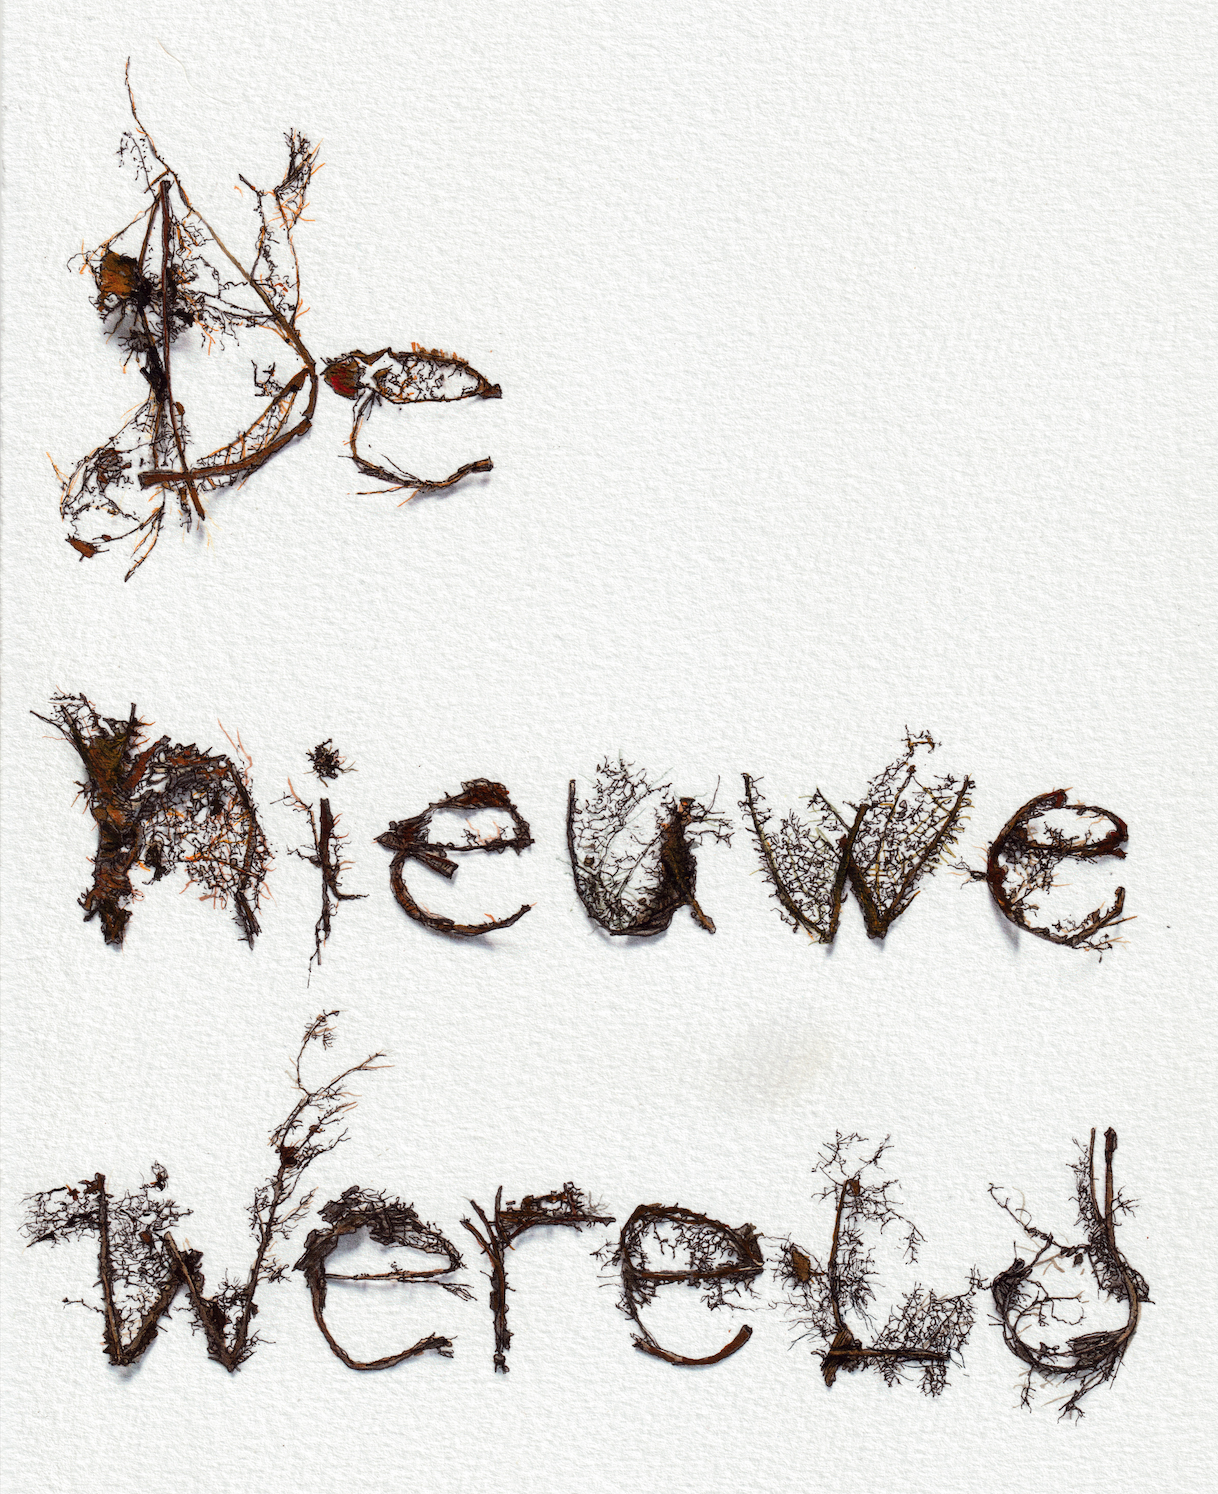 De
nieuwe
wereLd